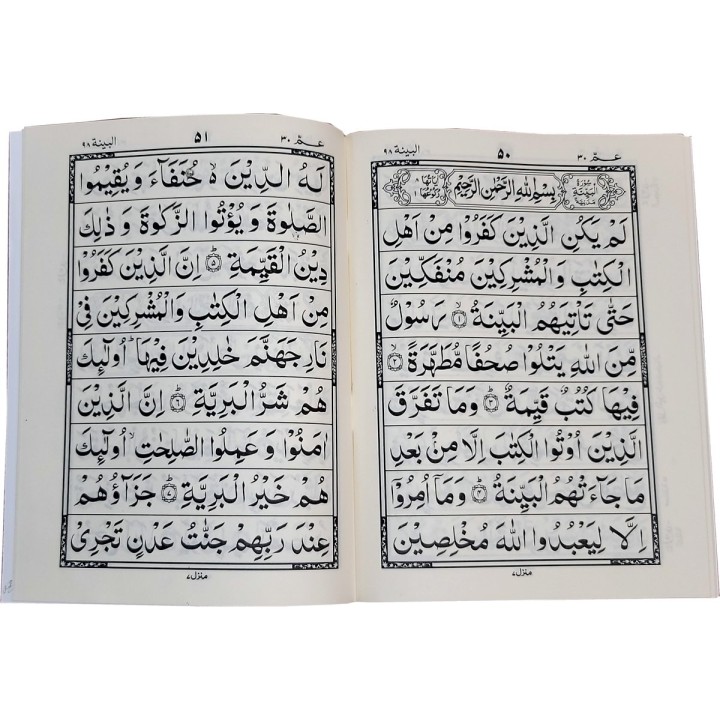 عـمّ ٣٠
٥٠
البينة ٩٨
سُوْرَةُ الْبَيِّنَةِ مَدَنِيَّة
بِسْمِ اللّٰهِ الرَّحْمٰنِ الرَّحِيْمِ
لَمْ يَكُنِ الَّذِيْنَ كَفَرُوْا مِنْ اَهْلِ
الْكِتٰبِ وَالْمُشْرِكِيْنَ مُنْفَكِّيْنَ
حَتّٰى تَاْتِيَهُمُ الْبَيِّنَةُ ۙ﴿۱﴾ رَسُوْلٌ
مِّنَ اللّٰهِ يَتْلُوْا صُحُفًا مُّطَهَّرَةً ۙ﴿۲﴾
فِيْهَا كُتُبٌ قَيِّمَةٌ ؕ﴿۳﴾ وَمَا تَفَرَّقَ
الَّذِيْنَ اُوْتُوا الْكِتٰبَ اِلَّا مِنْۢ بَعْدِ
مَا جَآءَتْهُمُ الْبَيِّنَةُ ؕ﴿۴﴾ وَمَاۤ اُمِرُوْۤا
اِلَّا لِيَعْبُدُوا اللّٰهَ مُخْلِصِيْنَ
منزل ٧
عـمّ ٣٠
٥١
البينة ٩٨
لَهُ الدِّيْنَ ۙ حُنَفَآءَ وَيُقِيْمُوا
الصَّلٰوةَ وَيُؤْتُوا الزَّكٰوةَ وَذٰلِكَ
دِيْنُ الْقَيِّمَةِ ؕ﴿۵﴾ اِنَّ الَّذِيْنَ كَفَرُوْا
مِنْ اَهْلِ الْكِتٰبِ وَالْمُشْرِكِيْنَ فِيْ
نَارِ جَهَنَّمَ خٰلِدِيْنَ فِيْهَا ؕ اُولٰٓئِكَ
هُمْ شَرُّ الْبَرِيَّةِ ؕ﴿۶﴾ اِنَّ الَّذِيْنَ
اٰمَنُوْا وَعَمِلُوا الصّٰلِحٰتِ ۙ اُولٰٓئِكَ
هُمْ خَيْرُ الْبَرِيَّةِ ؕ﴿۷﴾ جَزَآؤُهُمْ
عِنْدَ رَبِّهِمْ جَنّٰتُ عَدْنٍ تَجْرِيْ
منزل ٧